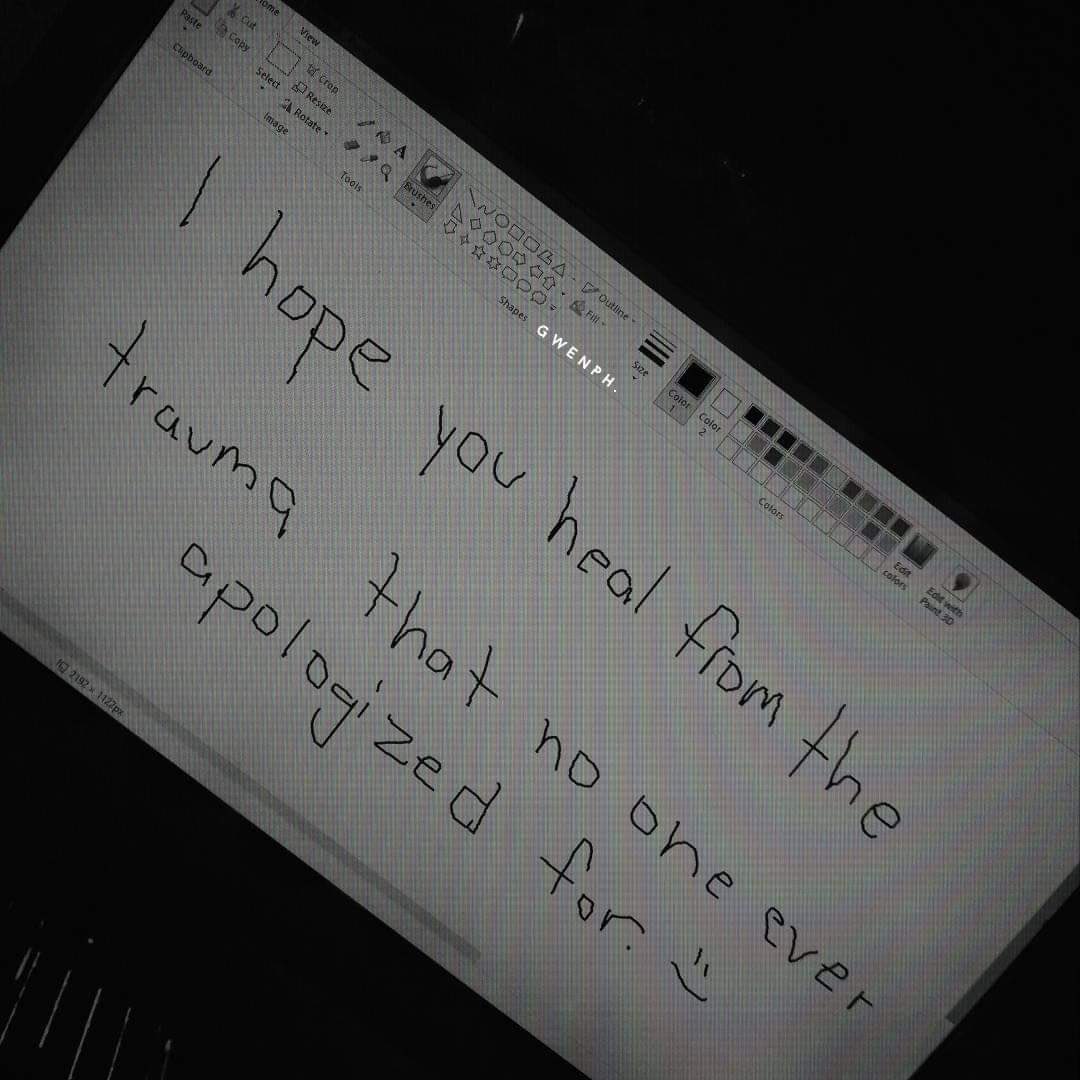 Home View
Paste Cut
Copy
Clipboard
Select Crop
Resize
Rotate
Image
Tools
Brushes
Outline
Fill
Shapes
Size
Color 1
Color 2
Colors
Edit colors
Edit with Paint 3D
GWENPH.
I hope you heal from the
trauma that no one ever
apologized for. :)
2192 × 1122px